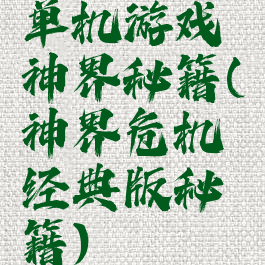 单机游戏
神界秘籍(
神界危机
经典版秘
籍)